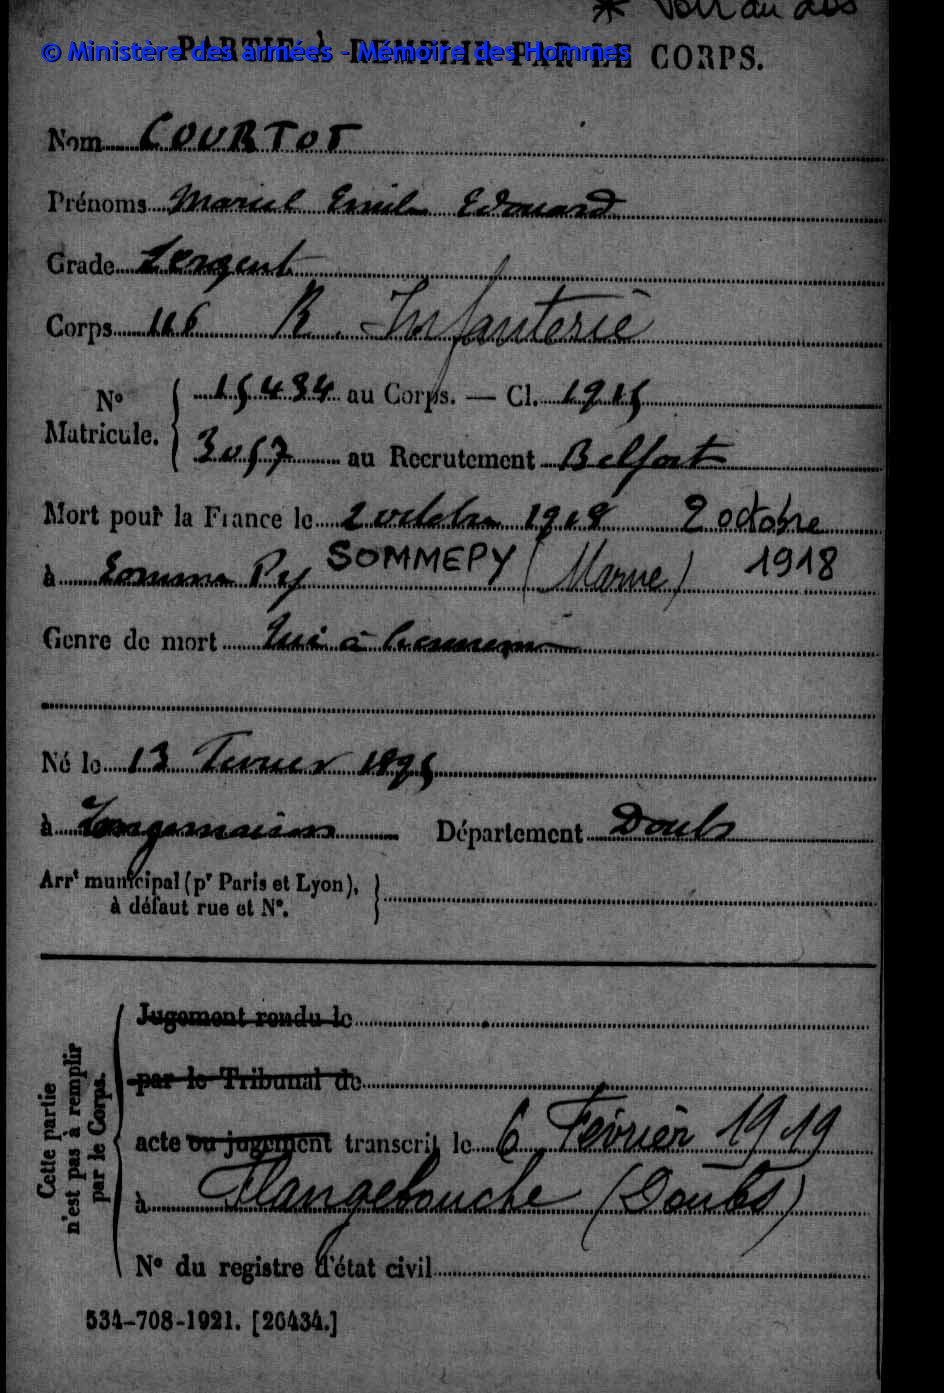 * Voir au dos
© Ministère des armées - Mémoire des Hommes
PARTIE À REMPLIR PAR LE CORPS.
Nom COURTOT
Prénoms Marcel Emile Edouard
Grade Sergent
Corps 106 R. Infanterie
N° Matricule. 15434 au Corps. — Cl. 1915
3057 au Recrutement Belfort
Mort pour la France le 2 octobre 1918 2 octobre
à Somme Py SOMMEPY (Marne) 1918
Genre de mort Tué à l'ennemi
Né le 13 Fevrier 1895
à Longemaison Département Doubs
Arrt municipal (pr Paris et Lyon),
à défaut rue et N°.
Cette partie
n'est pas à remplir
par le Corps.
Jugement rendu le
par le Tribunal de
acte ou jugement transcrit le 6 Février 1919
à Flangebouche (Doubs)
N° du registre d'état civil
534-708-1921. [26434.]